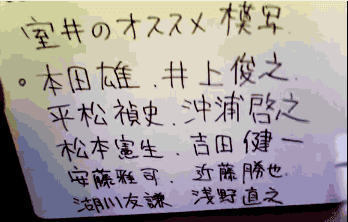 室井のオススメ模写
。本田雄.井上俊之.
平松禎史.沖浦啓之
松本憲生.吉田健一
安藤雅司.近藤勝也.
湖川友謙 浅野直之